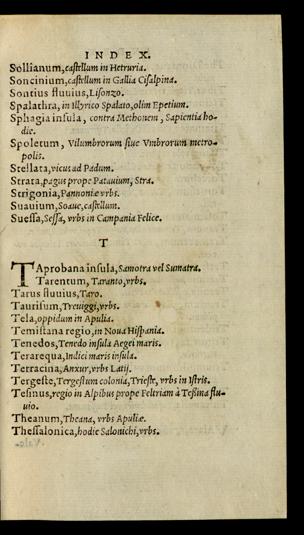 INDEX.
Sollianum, castellum in Hetruria.
Soncinium, castellum in Gallia Cisalpina.
Sontius fluuius, Lisonzo.
Spalathra, in Illyrico Spalato, olim Epetium.
Sphagia insula, contra Methonem, Sapientia ho-
die.
Spoletum, Vilumbrorum siue Vmbrorum metro-
polis.
Stellata, vicus ad Padum.
Strata, pagus prope Patauium, Stra.
Strigonia, Pannoniæ vrbs.
Suauium, Soaue, castellum.
Suessa, Sessa, vrbs in Campania Felice.
T
TAprobana insula, Samotra vel Sumatra.
Tarentum, Taranto, vrbs.
Tarus fluuius, Taro.
Taurisum, Treuiggi, vrbs.
Tela, oppidum in Apulia.
Temistana regio, in Noua Hispania.
Tenedos, Tenedo insula Aegei maris.
Terarequa, Indici maris insula.
Terracina, Anxur, vrbs Latij.
Tergeste, Tergestum colonia, Trieste, vrbs in Istris.
Tesinus, regio in Alpibus prope Feltriam à Tessina flu-
uio.
Theanum, Theana, vrbs Apuliæ.
Thessalonica, hodie Salonichi, vrbs.